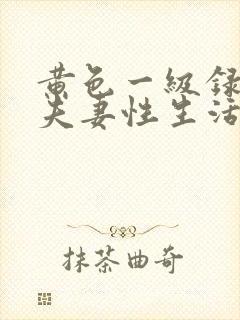 黄色一级录
夫妻性生活
抹茶曲奇